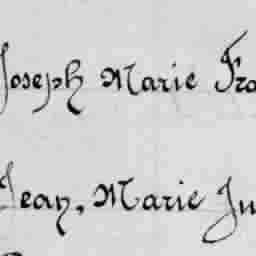 Joseph Marie Fra
Jean, Marie Ju